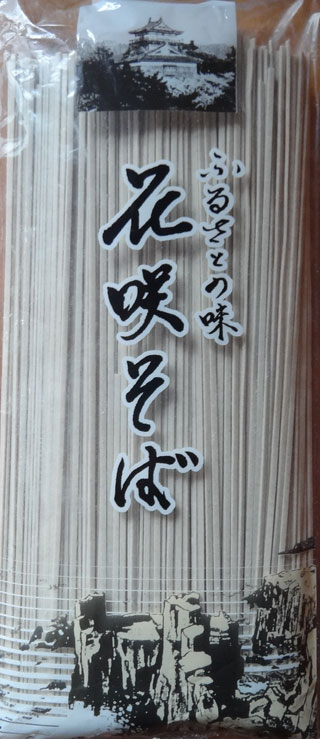 ふるさとの味
花咲そば